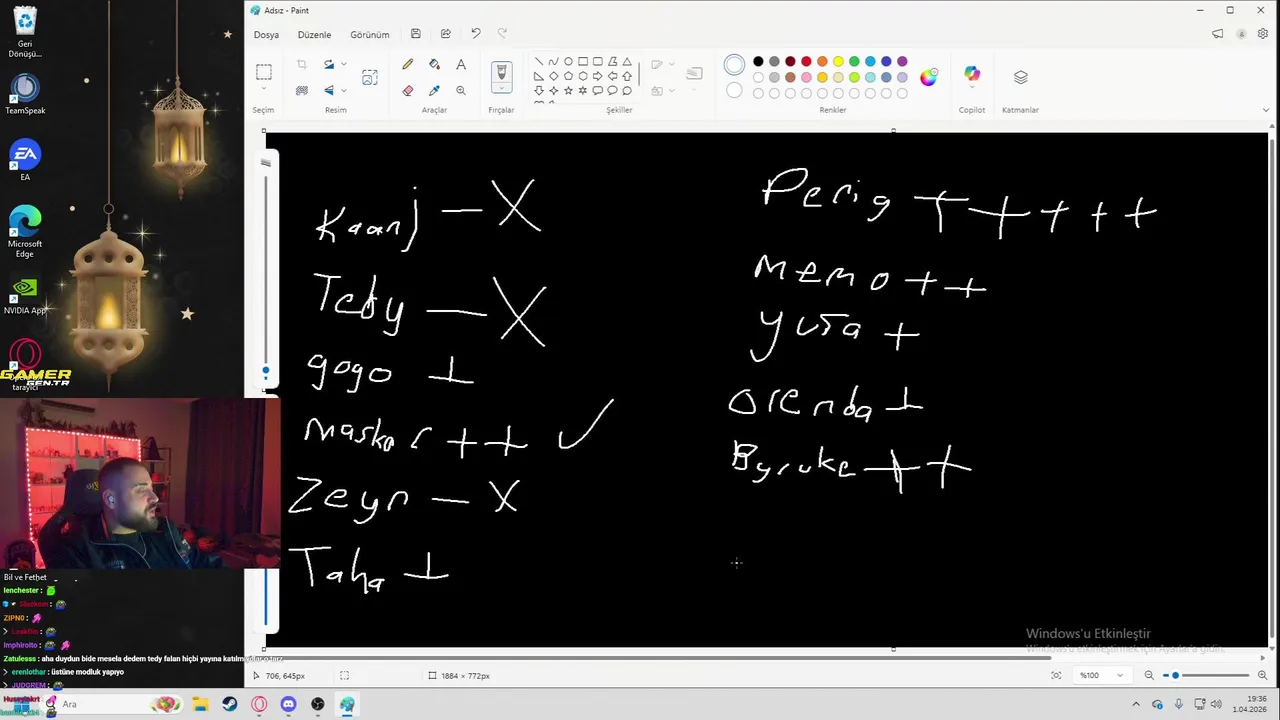 Adsız - Paint
Dosya Düzenle Görünüm
Seçim Resim Araçlar Fırçalar Şekiller Renkler Copilot Katmanlar
Geri
Dönüşü...
TeamSpeak
EA
Microsoft
Edge
NVIDIA App
tarayıcı
GAMER
GEN.TR
Kaanj — X
Tedy — X
gogo +
maskar ++ ✓
Zeyn — X
Taha +
Perig +++++
memo ++
yuşa +
orenda +
Byruke ++
Bil ve Fethet
lenchester :
ZIPN0 :
Imphiroito :
Zatulesss : aha duydun bide mesela dedem tedy falan hiçbi yayına
erenlothar: üstüne modluk yapıyo
JUDGREM :
Windows'u Etkinleştir
Windows'u etkinleştirmek için Ayarlar'a gidin.
706, 645px 1884 × 772px %100
Ara
19:36
1.04.2026